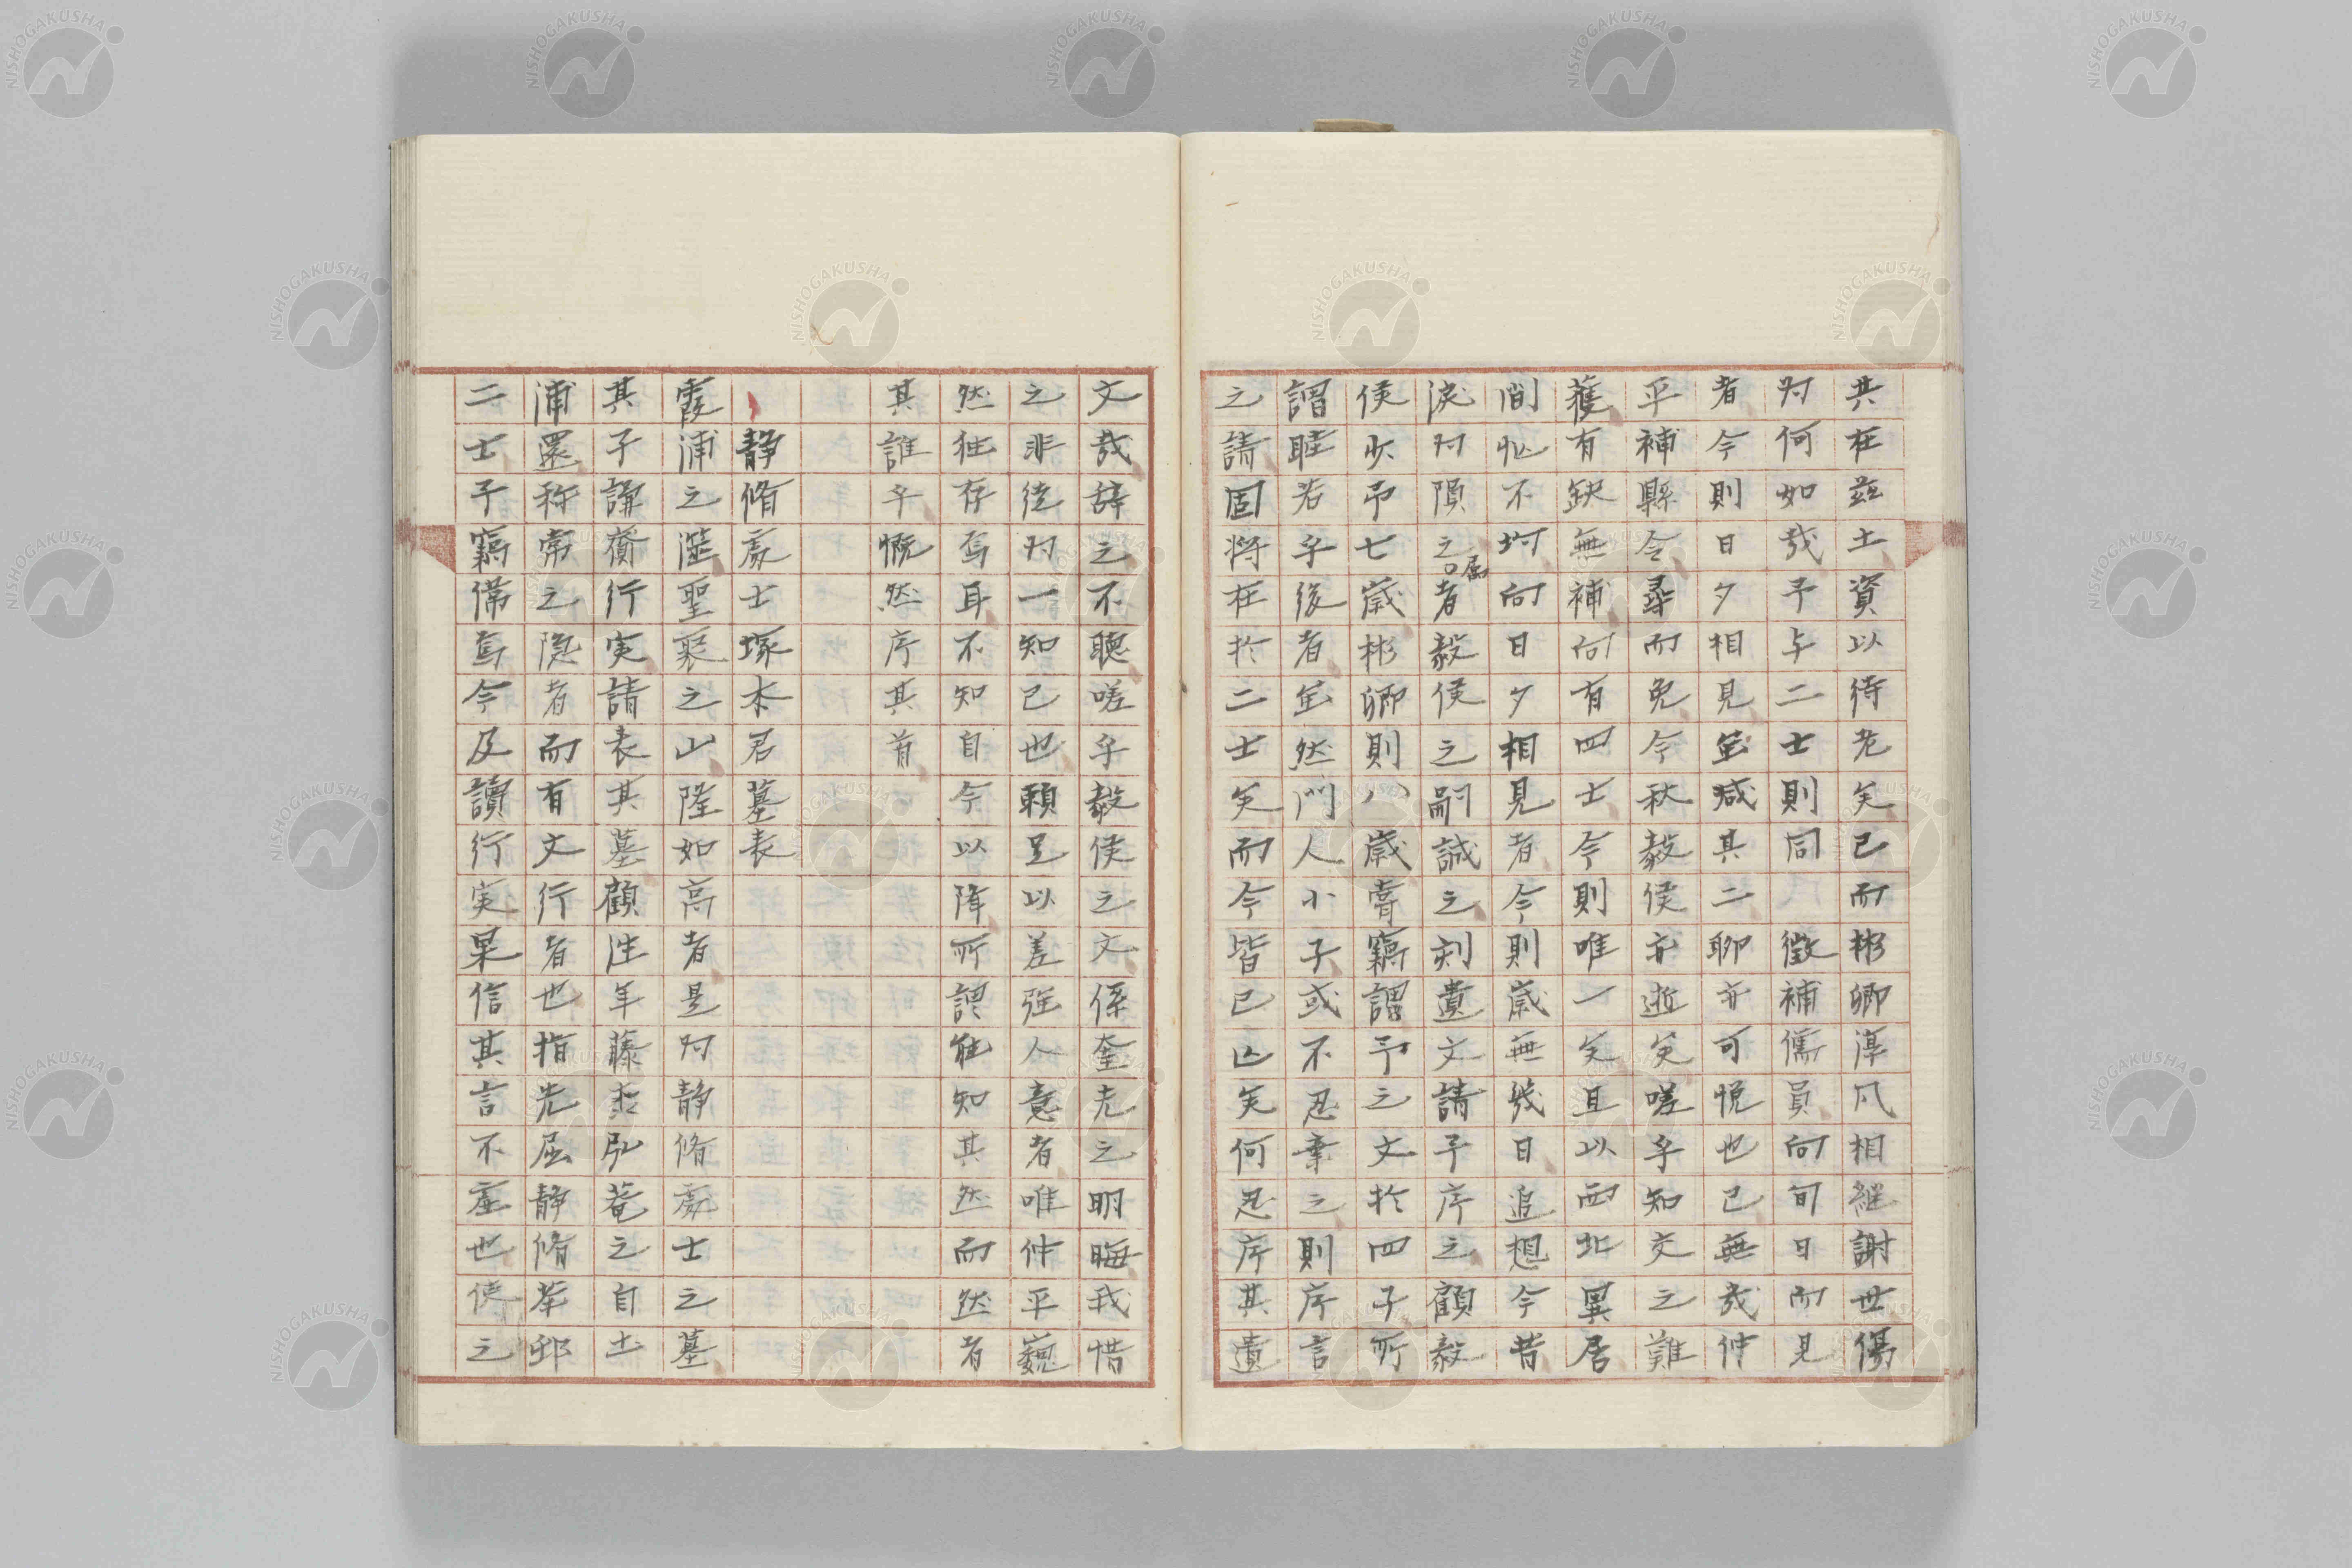 共在茲土資以待老矣已而彬卿淳風相継謝世傷
対何如哉予与二士則同徴補儒員向旬日而見
者今則日夕相見虽減其二聊亦可悦也已無哉仲
平補縣令尋而免今秋毅侯亦逝矣嗟乎知交之難
獲有缺無補向有四士今則唯一矣且以西北異居
間忆不坷向日夕相見者今則歳無幾日追想今昔
涙対隕之属者毅侯之嗣誠之刻遺文請予序之顧毅
侯少予七歳彬卿則八歳嘗竊謂予之文於四子所
謂睦若乎後者虽然門人小子或不忍棄之則序言
之請固将在於二士矣而今皆已亡矣何忍序其遺
文哉辞之不聴嗟乎毅侯之文係奎光之明晦我惜
之非徒対一知己也頼足以差強人意者唯仲平巍
然独存焉耳不知自今以降所謂能知其然而然者
其誰乎慨然序其首
静脩処士塚本君墓表
霞浦之滋聖聚之山隆如高者是対静脩処士之墓
其子謙齎行実請表其墓顧往年藤杰弘菴之自土
浦還称常之隐者而有文行者也指先屈静脩萃邨
二士予竊偉焉今及讀行実果信其言不虚也使之